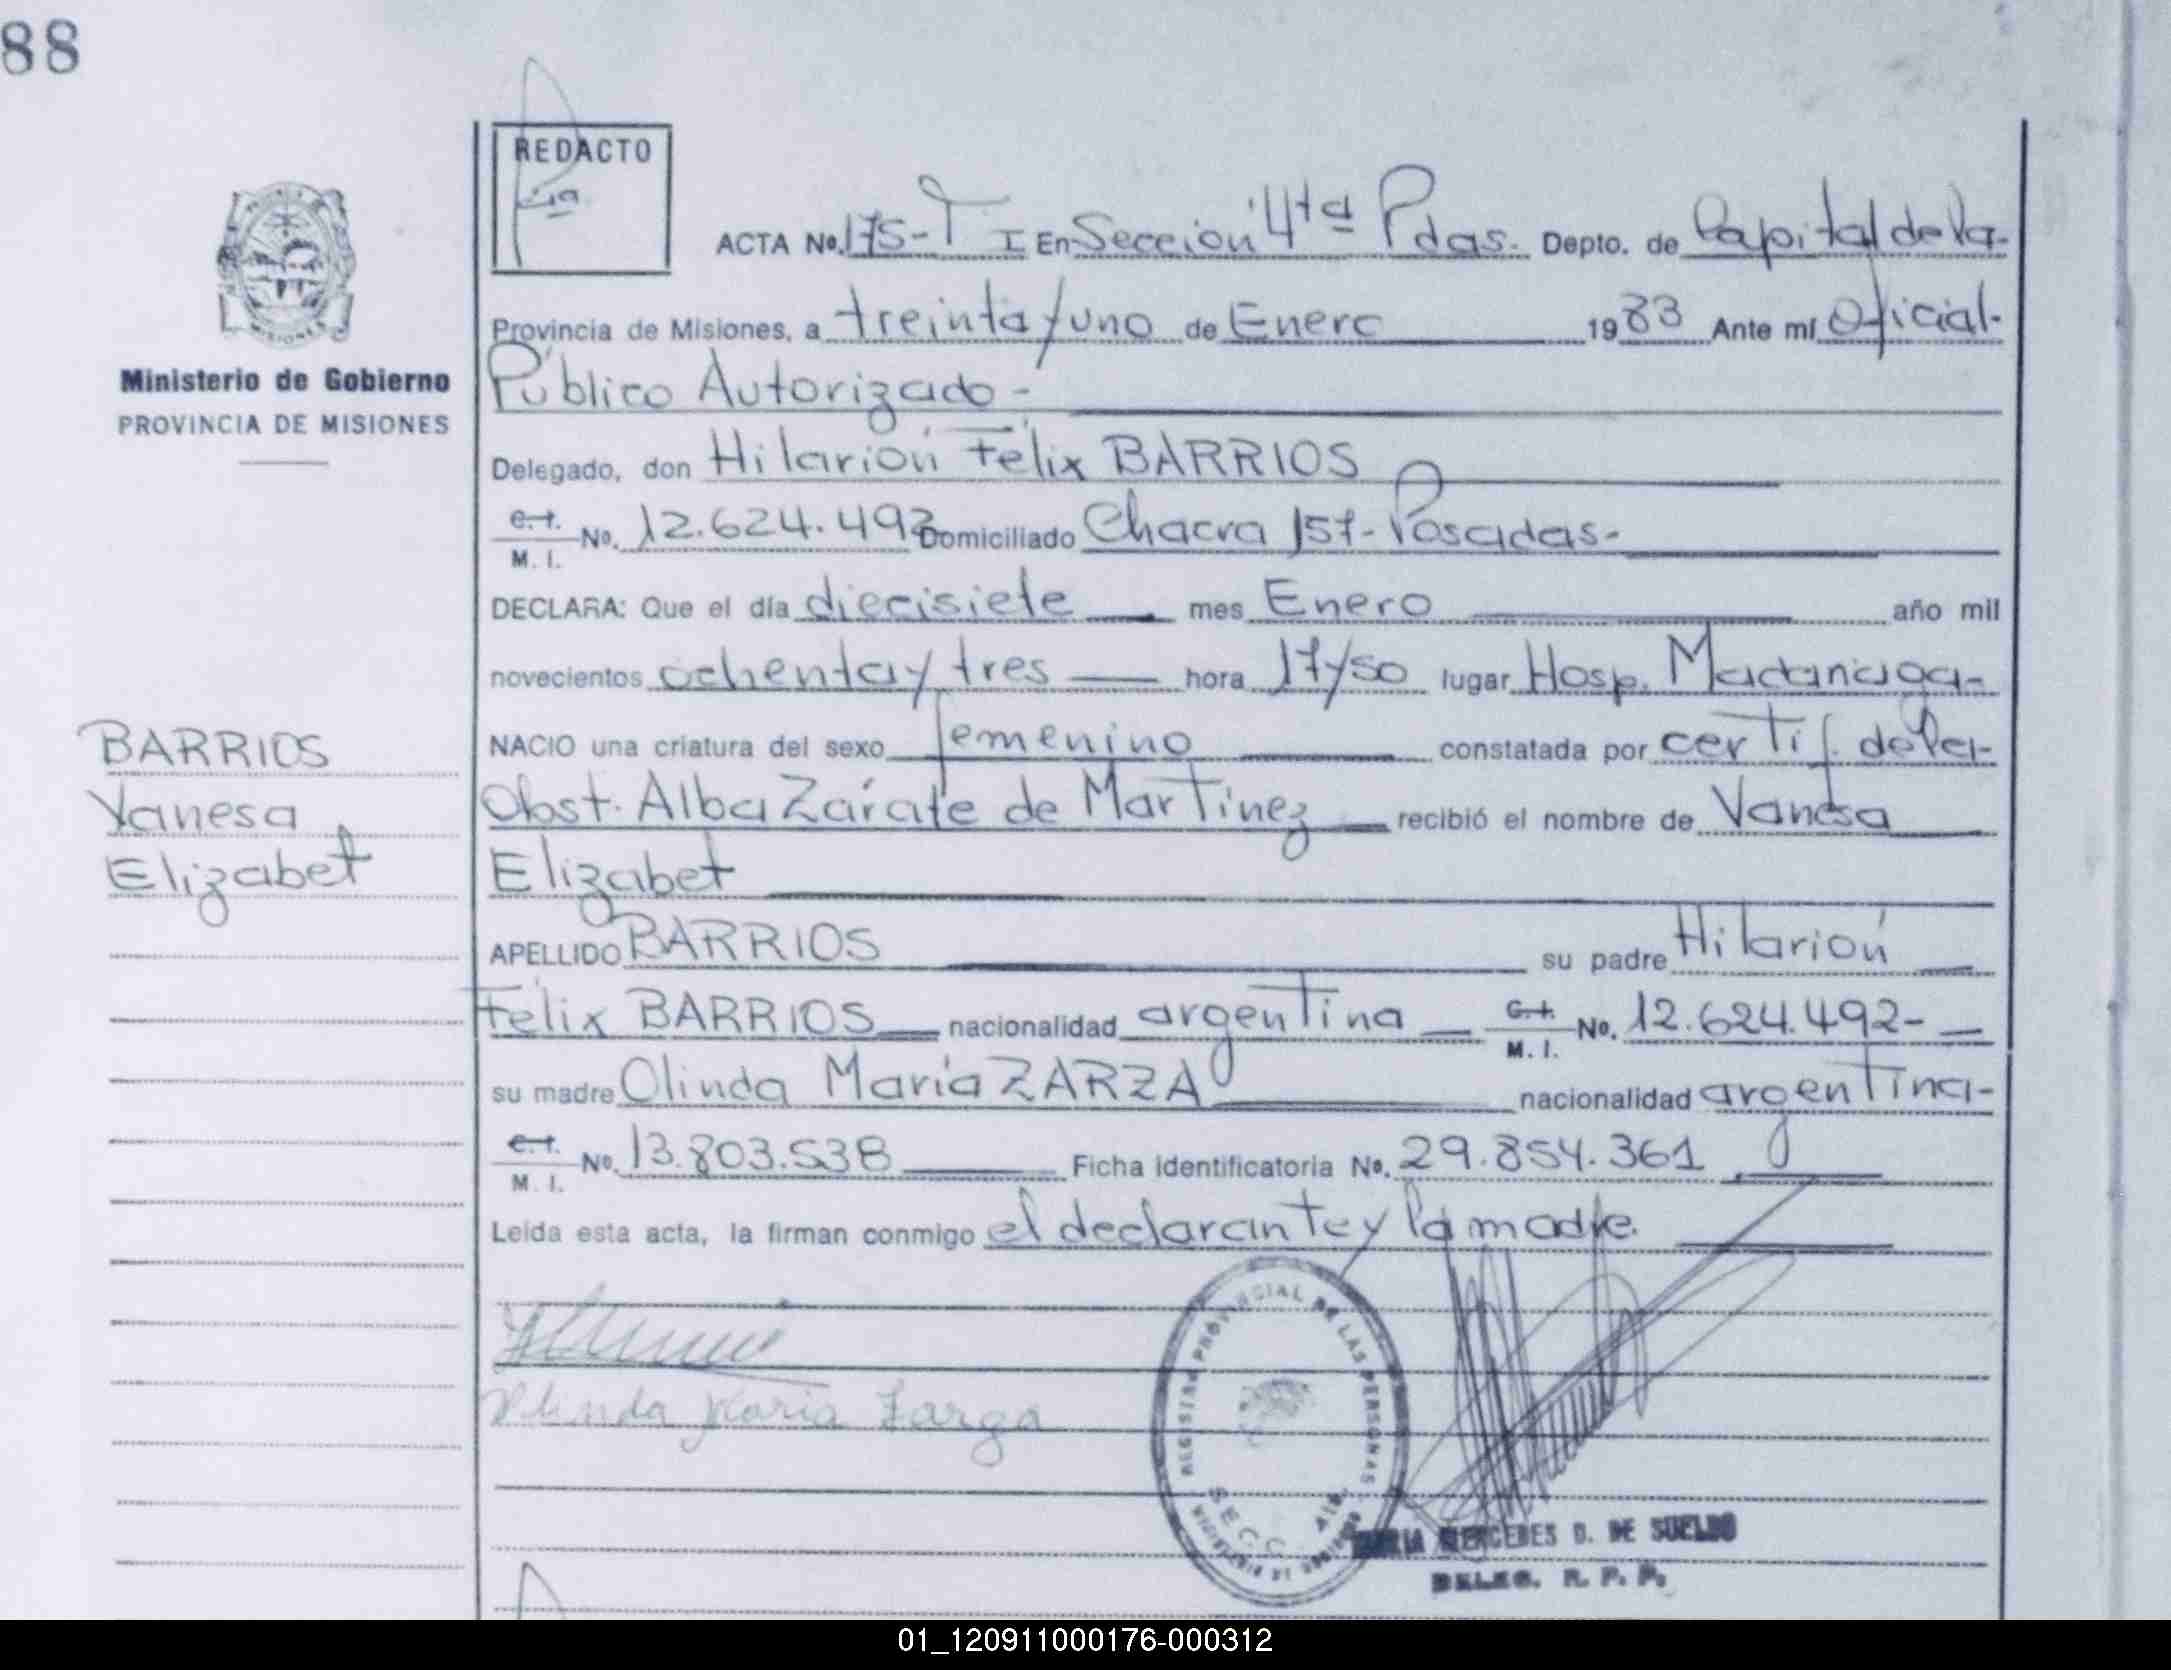 88
REDACTO
ACTA No. 175-T I En Sección 4ta Pdas. Depto. de Capital de la-
Provincia de Misiones, a treinta y uno de Enero 1983 Ante mí Oficial-
Público Autorizado-
Ministerio de Gobierno
PROVINCIA DE MISIONES
Delegado, don Hilarión Félix BARRIOS
C.I. M.I. No. 12.624.492 Domiciliado Chacra 157- Posadas-
DECLARA: Que el día diecisiete mes Enero año mil
novecientos ochenta y tres hora 17/50 lugar Hosp. Madariaga-
NACIO una criatura del sexo femenino constatada por certif. de la-
Obst. Alba Zárate de Martínez recibió el nombre de Vanesa
Elizabet
BARRIOS
Vanesa
Elizabet
APELLIDO BARRIOS su padre Hilarión
Félix BARRIOS nacionalidad argentina C.I. M.I. No. 12.624.492-
su madre Olinda María ZARZA nacionalidad argentina-
C.I. M.I. No. 13.803.538 Ficha Identificatoria No. 29.854.361
Leída esta acta, la firman conmigo el declarante y la madre.
Olinda Maria Zarza
REGISTRO PROVINCIAL DE LAS PERSONAS
SECC. 4ta.
MARIA MERCEDES D. DE SUELDO
DELEG. R. P. P.
01_120911000176-000312